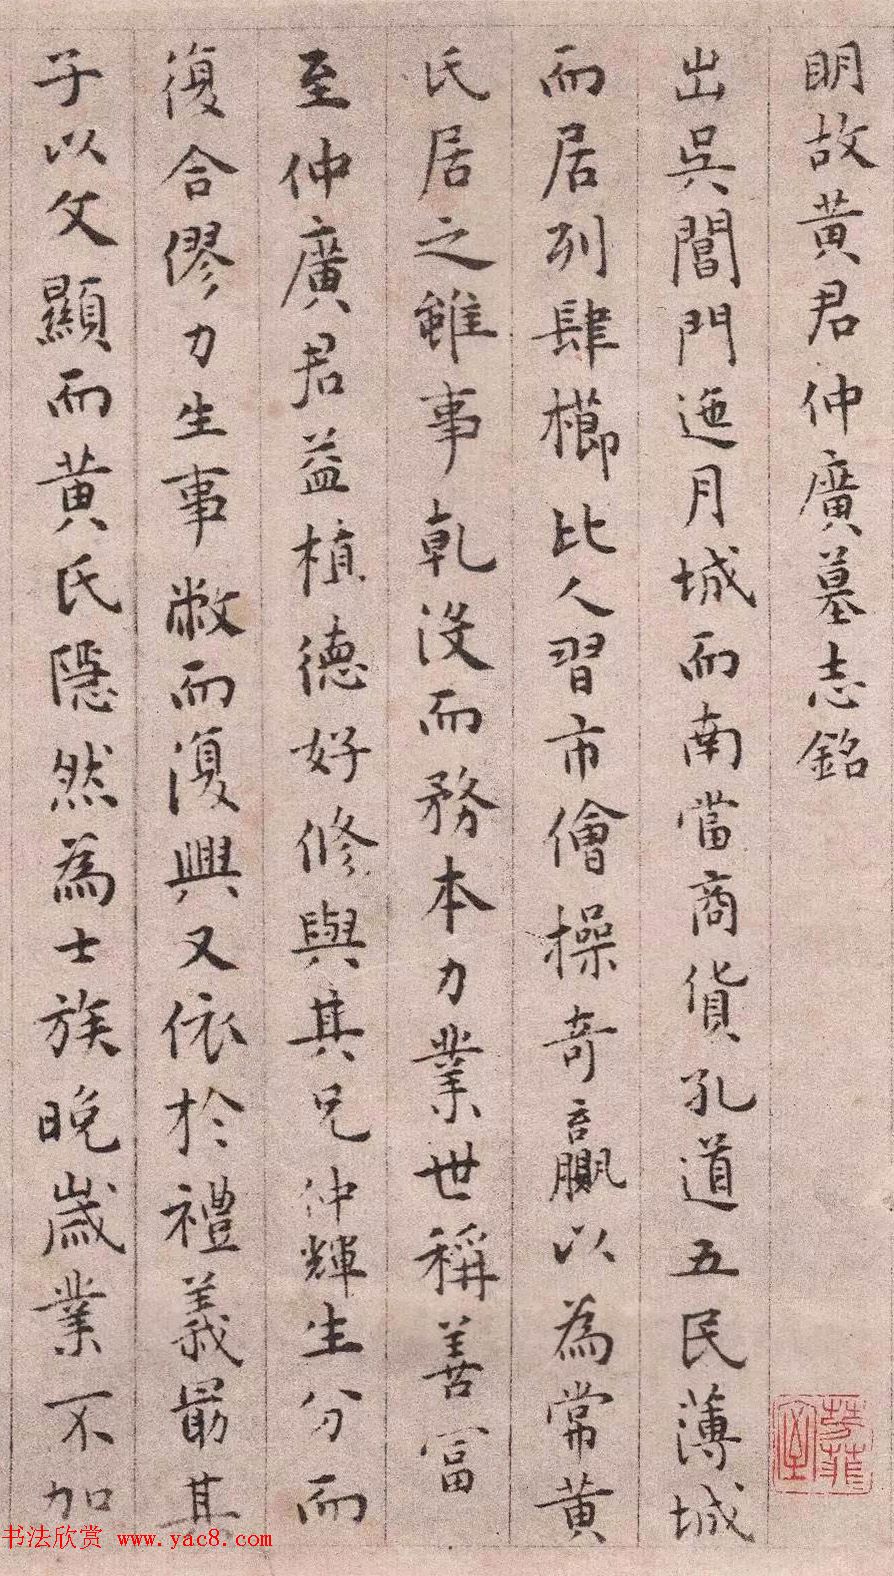 明故黃君仲廣墓志銘
出吳閶門迤月城而南當商貨孔道五民薄城
而居列肆櫛比人習市儈操奇贏以為常黃
氏居之雖事乹沒而務本力業世稱善富
至仲廣君益植德好修與其兄仲輝生分而
復合僇力生事敝而復興又依於禮義最其
子以文顯而黃氏隱然為士族晚歲業不加
书法欣赏 www.yac8.com